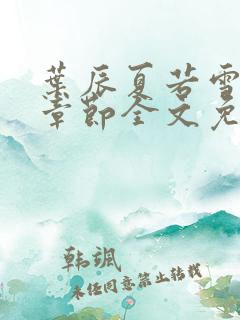 葉辰夏若雪
章節全文免
韩飒
未经同意禁止转载